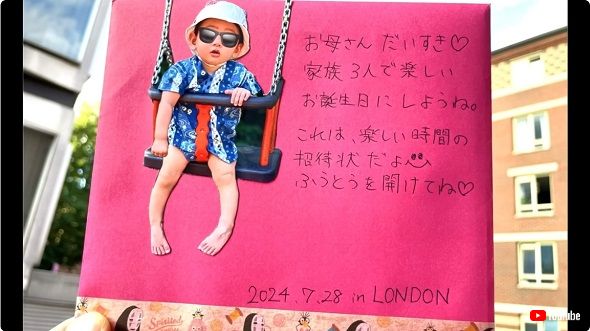 お母さん だいすき♡
家族3人で楽しい
お誕生日にしようね。
これは、楽しい時間の
招待状だよ
ふうとうを開けてね♡
2024.7.28 in LONDON
Spirited
YouTube